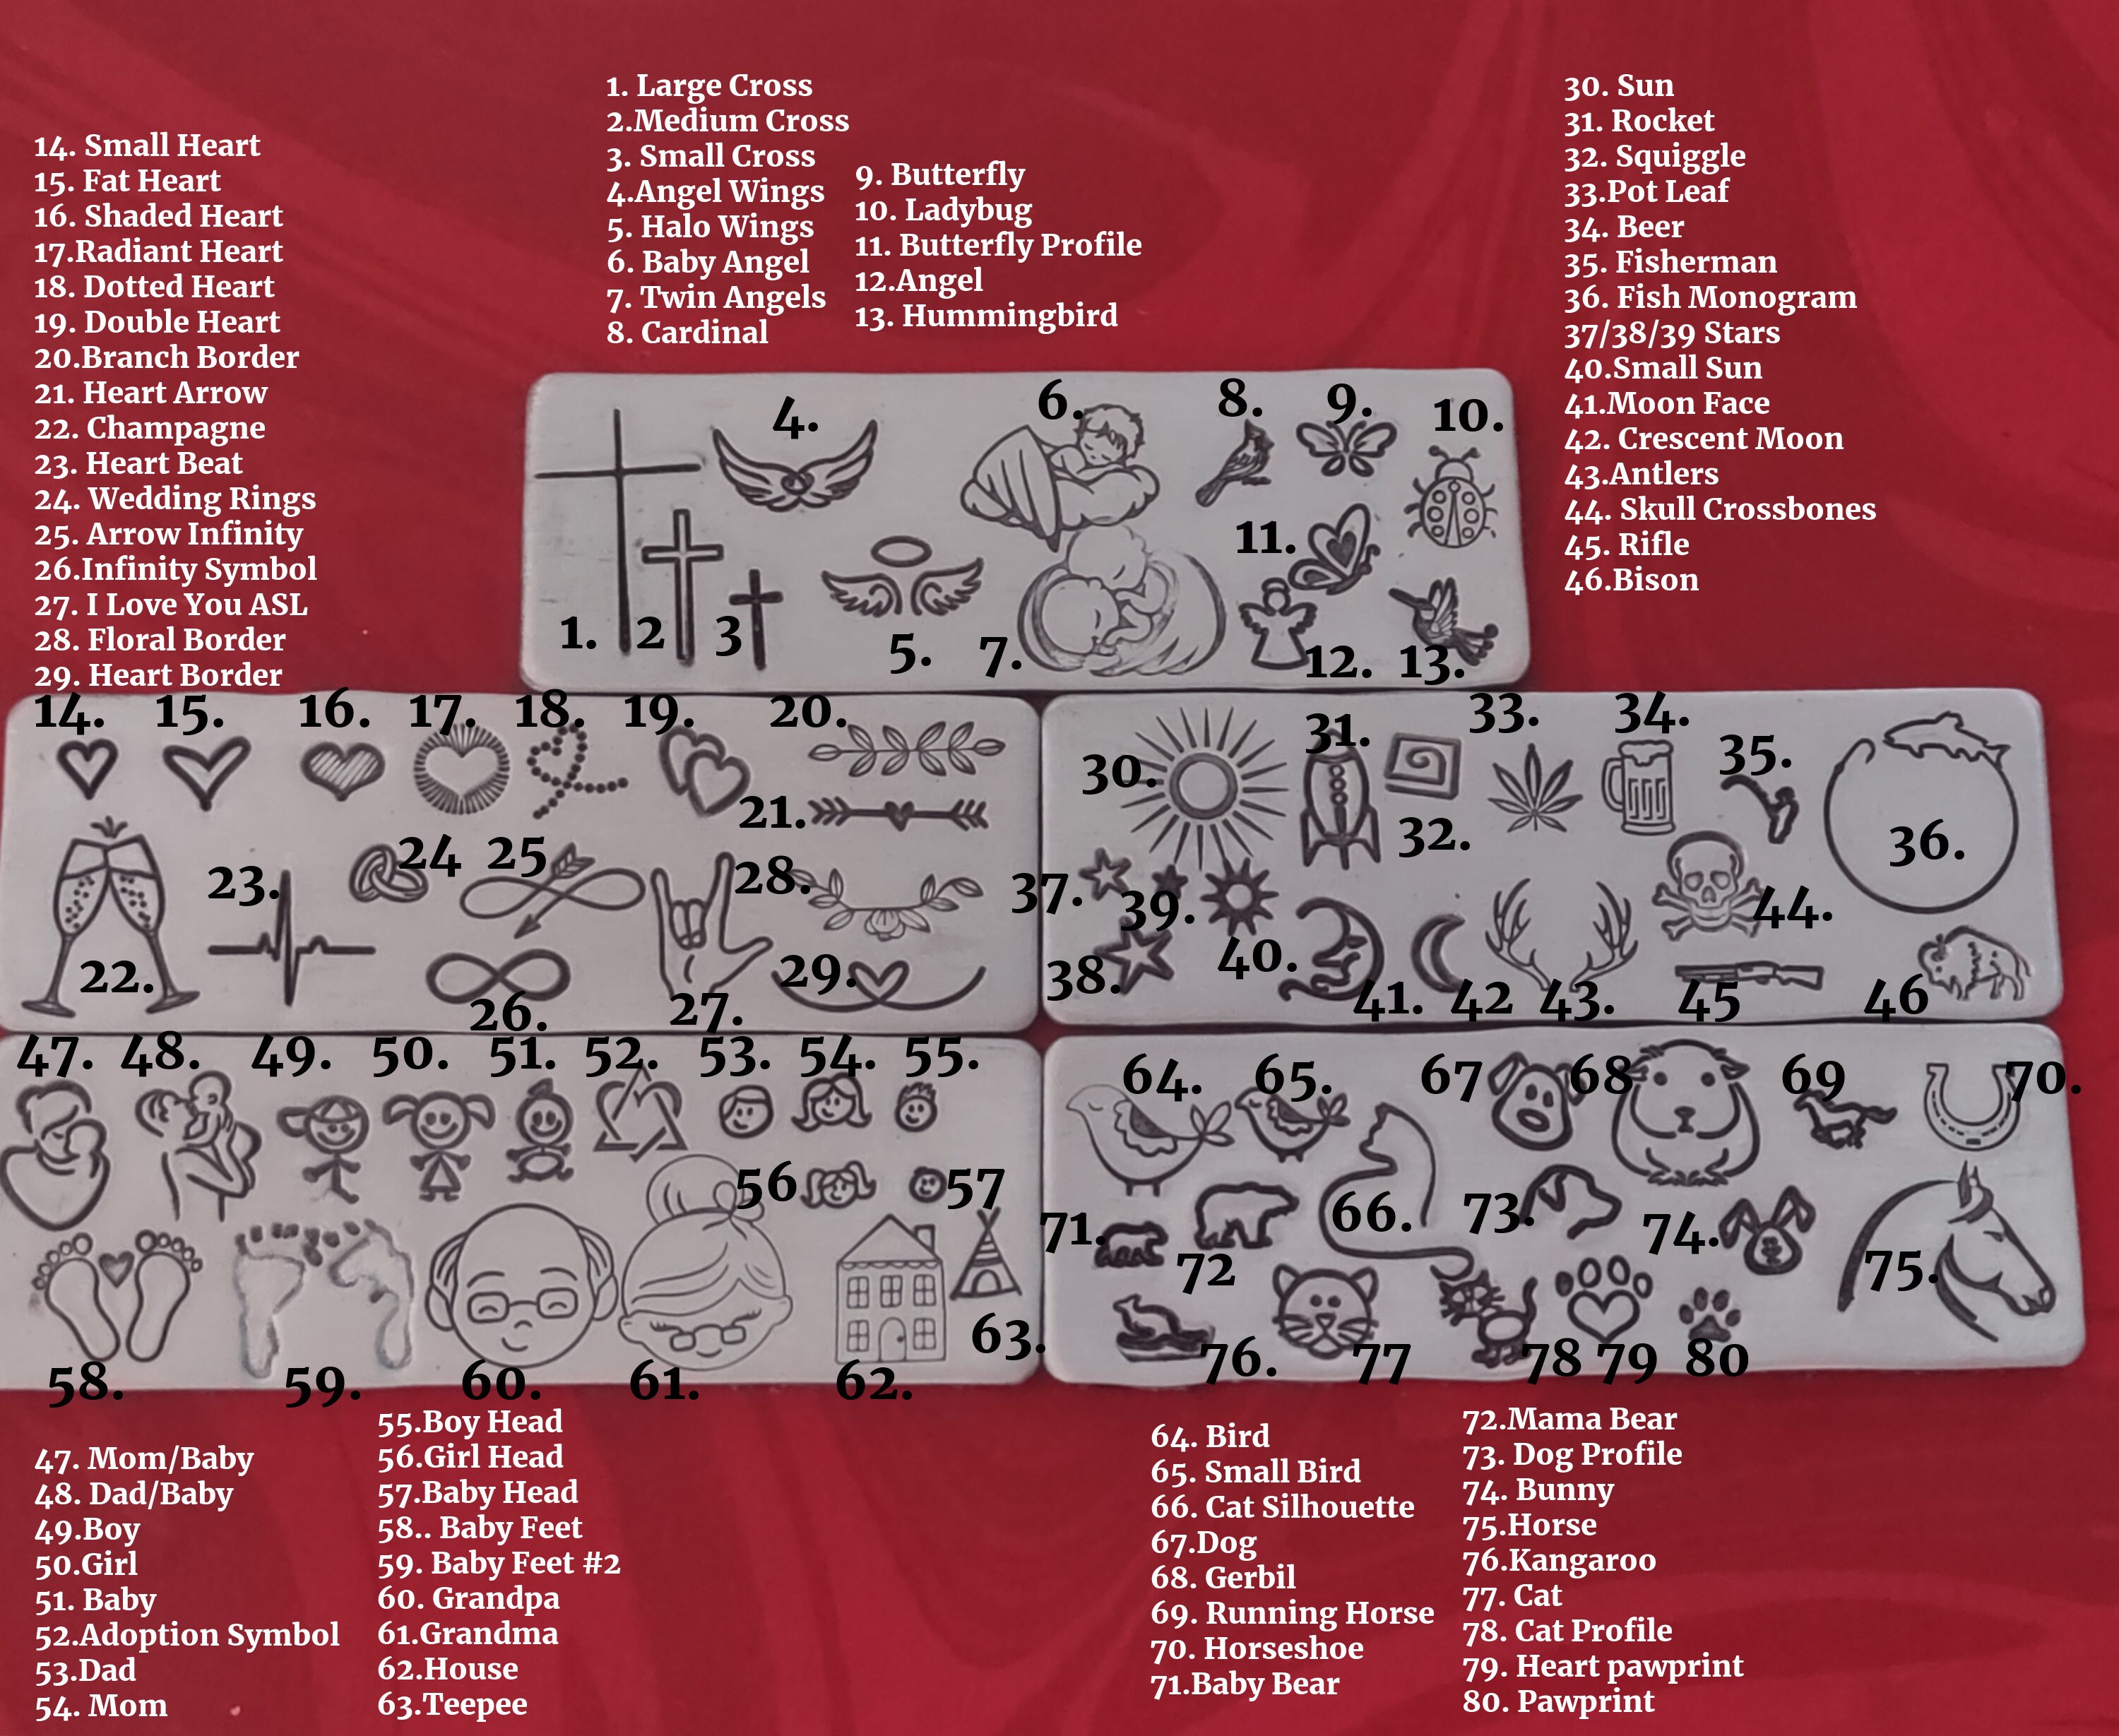 1. Large Cross
2.Medium Cross
3. Small Cross
4.Angel Wings
5. Halo Wings
6. Baby Angel
7. Twin Angels
8. Cardinal
9. Butterfly
10. Ladybug
11. Butterfly Profile
12.Angel
13. Hummingbird
14. Small Heart
15. Fat Heart
16. Shaded Heart
17.Radiant Heart
18. Dotted Heart
19. Double Heart
20.Branch Border
21. Heart Arrow
22. Champagne
23. Heart Beat
24. Wedding Rings
25. Arrow Infinity
26.Infinity Symbol
27. I Love You ASL
28. Floral Border
29. Heart Border
30. Sun
31. Rocket
32. Squiggle
33.Pot Leaf
34. Beer
35. Fisherman
36. Fish Monogram
37/38/39 Stars
40.Small Sun
41.Moon Face
42. Crescent Moon
43.Antlers
44. Skull Crossbones
45. Rifle
46.Bison
4.
6.
8.
9.
10.
11.
1.
2
3
5.
7.
12.
13.
14.
15.
16.
17.
18.
19.
20.
21.
23.
24
25
28.
22.
29.
26.
27.
33.
34.
31.
35.
30.
32.
36.
37.
39.
44.
40.
38.
41.
42
43.
45
46
47.
48.
49.
50.
51.
52.
53.
54.
55.
56
57
63.
58.
59.
60.
61.
62.
64.
65.
67
68
69
70.
71.
66.
73.
74.
72
75.
76.
77
78
79
80
47. Mom/Baby
48. Dad/Baby
49.Boy
50.Girl
51. Baby
52.Adoption Symbol
53.Dad
54. Mom
55.Boy Head
56.Girl Head
57.Baby Head
58.. Baby Feet
59. Baby Feet #2
60. Grandpa
61.Grandma
62.House
63.Teepee
64. Bird
65. Small Bird
66. Cat Silhouette
67.Dog
68. Gerbil
69. Running Horse
70. Horseshoe
71.Baby Bear
72.Mama Bear
73. Dog Profile
74. Bunny
75.Horse
76.Kangaroo
77. Cat
78. Cat Profile
79. Heart pawprint
80. Pawprint